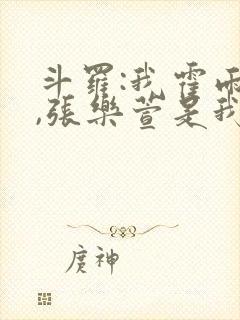 斗羅:我霍雨
,張樂萱是我
庚神